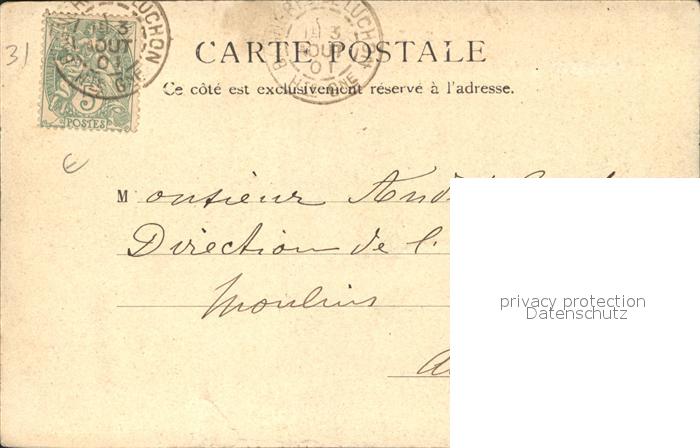 31
CARTE POSTALE
Ce côté est exclusivement réservé à l'adresse.
LUCHON
3
AOUT
01
LUCHON
3
AOUT
01
5
POSTES
Monsieur
Direction de l'
Moulins
privacy protection
Datenschutz